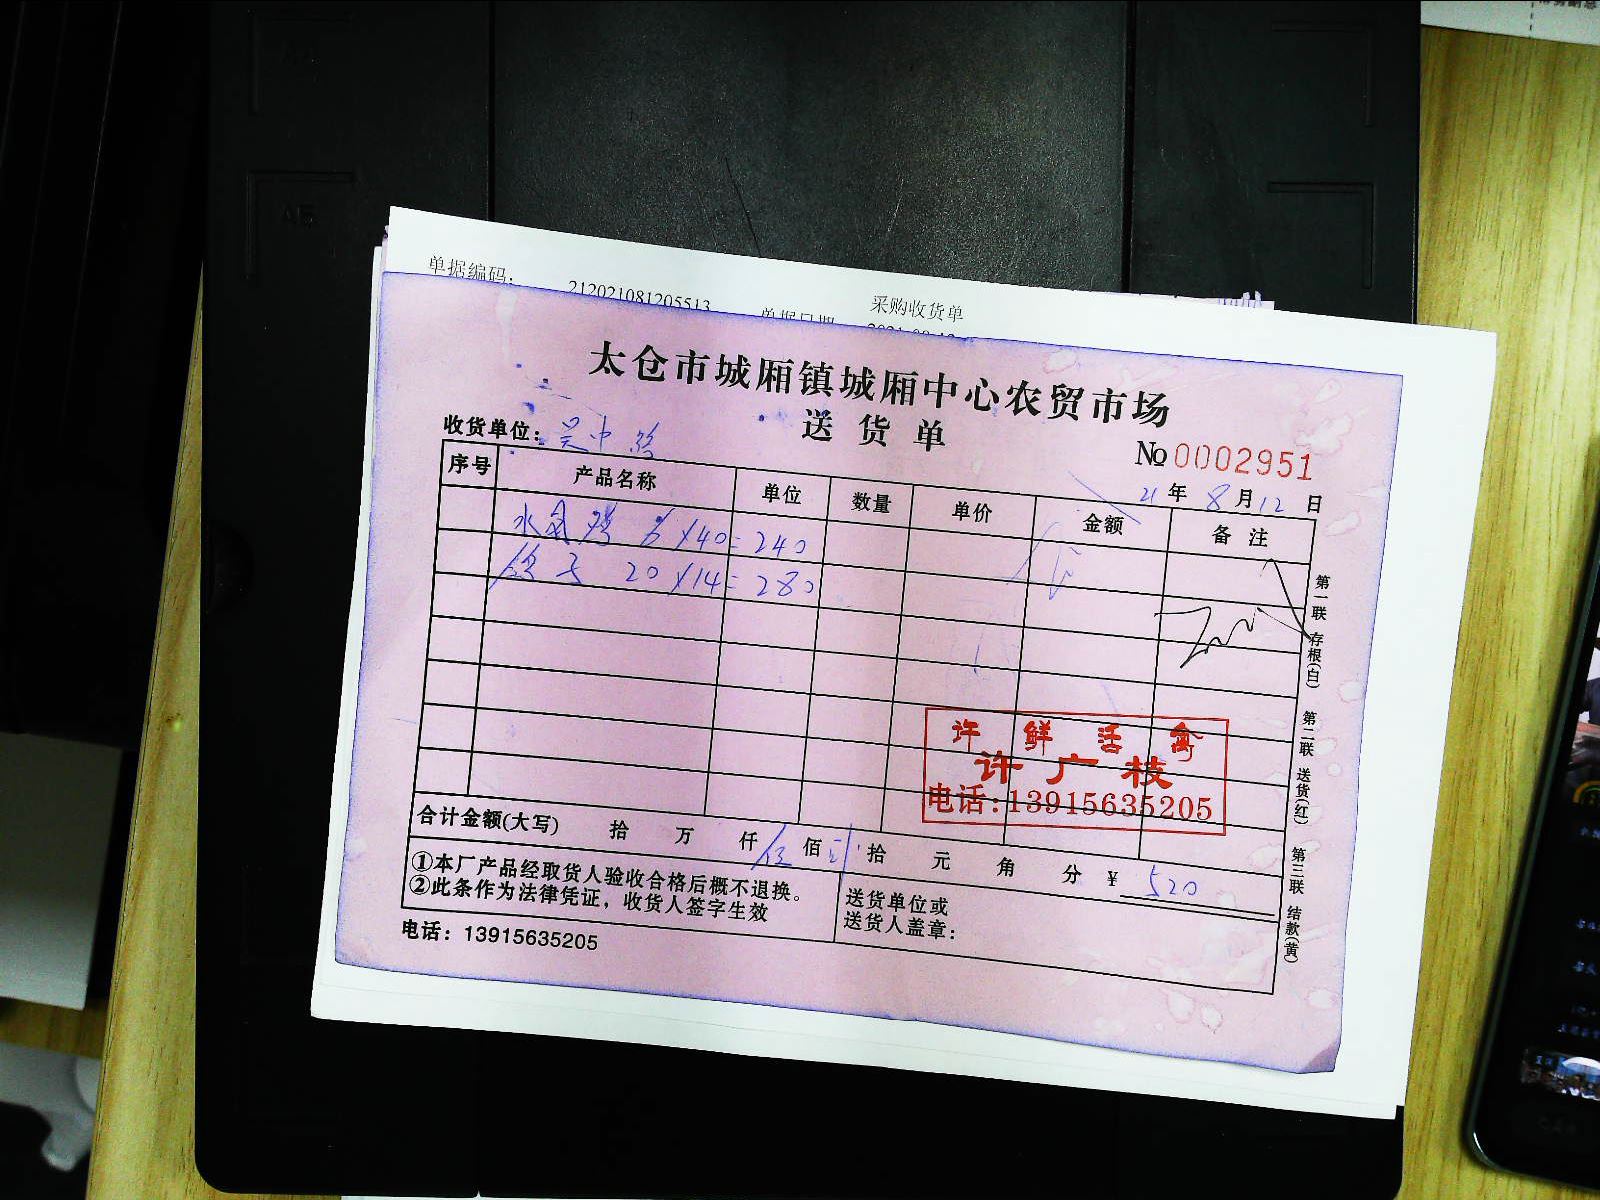 单据编码：
212021081205513
采购收货单
单据日期
太仓市城厢镇城厢中心农贸市场
送货单
收货单位：吴中
№ 0002951
21年8月12日
序号 产品名称 单位 数量 单价 金额 备注
水 6×40=240
鸽子 20×14=280
第一联 存根(白)
第二联 送货(红)
第三联 结款(黄)
许鲜活禽
许广枝
电话：13915635205
合计金额(大写) 拾 万 仟 伍 佰 贰 拾 元 角 分 ¥ 520
①本厂产品经取货人验收合格后概不退换。
②此条作为法律凭证，收货人签字生效
送货单位或
送货人盖章：
电话：13915635205
A5